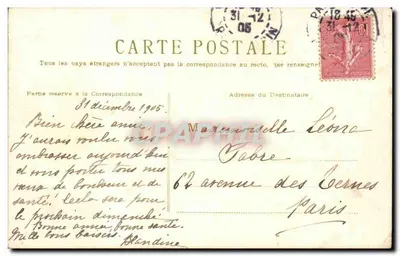 CARTE POSTALE
Tous les pays étrangers n'acceptent pas la correspondance au recto, (se renseigner
Partie réservée à la Correspondance
Adresse du Destinataire
31 décembre 1905.
Bien chère amie,
J'aurais voulu vous
embrasser aujourd'hui
et vous porter tous mes
vœux de bonheur et de
santé! Cela sera pour
le prochain dimanche
Bonne année, bonne santé.
Mille bons baisers.
Blandine
Mademoiselle Léona
Fabre
62 avenue des Ternes
Paris
18 45
31-12
05
31-12
05